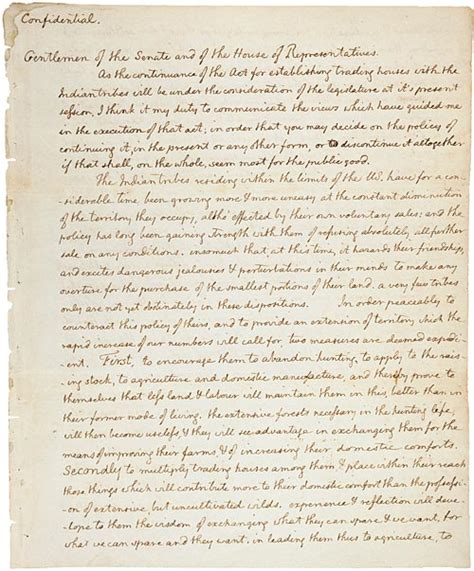 Confidential.
Gentlemen of the Senate and of the House of Representatives.
As the continuance of the Act for establishing trading houses with the
Indian tribes will be under the consideration of the legislature at it's present
session, I think it my duty to communicate the views which have guided me
in the execution of that act; in order that you may decide on the policy of
continuing it, in the present or any other form, or to discontinue it altogether
if that shall, on the whole, seem most for the public good.
The Indian tribes residing within the limits of the U.S. have for a con-
-siderable time, been growing more & more uneasy at the constant diminution
of the territory they occupy, altho' effected by their own voluntary sales: and the
policy has long been gaining strength with them of refusing absolutely all further
sale on any conditions. insomuch that, at this time, it hazards their friendship,
and excites dangerous jealousies & perturbations in their minds to make any
overture for the purchase of the smallest portions of their land. a very few tribes
only are not yet obstinately in these dispositions. In order peaceably to
counteract this policy of theirs, and to provide an extension of territory which the
rapid increase of our numbers will call for, two measures are deemed expedi-
-ent. First, to encourage them to abandon hunting, to apply to the rais-
-ing stock, to agriculture and domestic manufacture, and thereby prove to
themselves that less land & labour will maintain them in this, better than in
their former mode of living. the extensive forests necessary in the hunting life,
will then become useless, & they will see advantage in exchanging them for the
means of improving their farms, & of increasing their domestic comforts.
Secondly to multiply trading houses among them & place within their reach
those things which will contribute more to their domestic comfort than the possessi-
-on of extensive, but uncultivated wilds. experience & reflection will deve-
-lope to them the wisdom of exchanging what they can spare & we want, for
what we can spare and they want. in leading them thus to agriculture, to